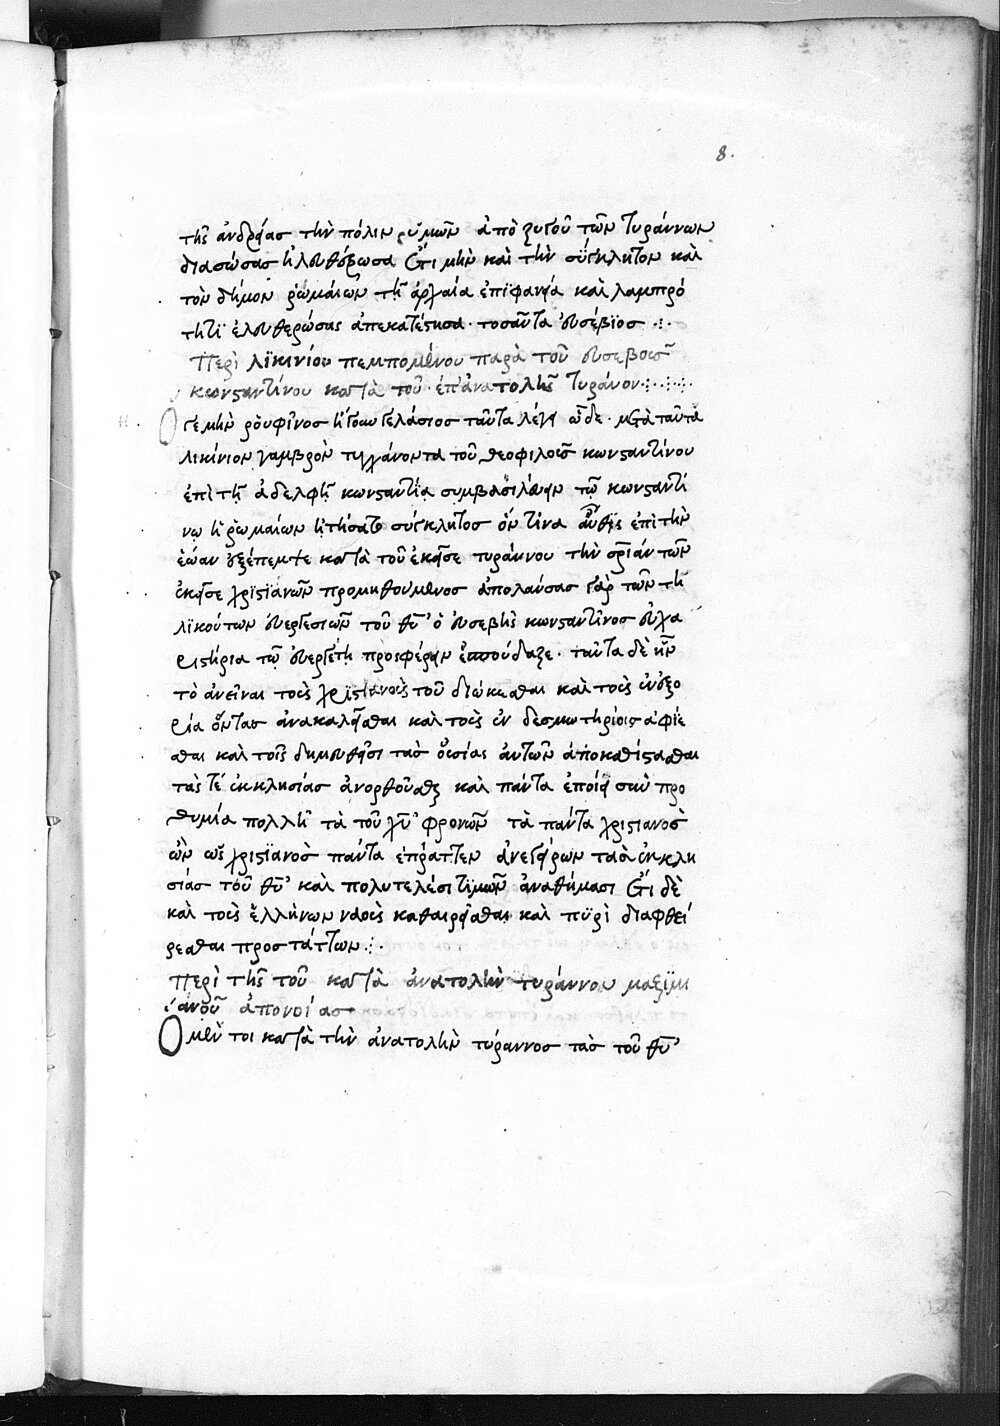 8.
τῆς ἀνδρείας τὴν πόλιν ὑμῶν ἀπὸ ζυγοῦ τῶν τυράννων
διασώσας ἠλευθέρωσα ἔτι μὴν καὶ τὴν σύγκλητον καὶ
τὸν δῆμον ῥωμαίων τῇ ἀρχαία ἐπϊφανεία καὶ λαμπρό
τητϊ ἐλευθερώσας ἀπεκατέστησα · τοσαῦτα ευσέβϊος
Περὶ λϊκινίου πεμπομένου παρὰ τοῦ ευσεβοῦς
κωνσταντίνου κατὰ τοῦ ἐπ' ἀνατολῆς τυράνου
Ὁ γε μὴν ῥουφῖνος ἤγουν γελάσιος ταῦτα λέγει ὧδε · μετὰ ταῦτα
λικίνιον γαμβρὸν τυγχάνοντα τοῦ θεοφιλοῦς κωνσταντίνου
ἐπὶ τῇ ἀδελφῇ κωνσταντία συμβασιλεύειν τῷ κωνσταντί
νω ἡ ῥωμαίων ἠτήσατο σύγκλητος ὅν τινα αὖθις ἐπὶ τὴν
ἑώαν ἐξέπεμψε κατὰ τοῦ ἐκεῖσε τυράννου τὴν σρίαν τῶν
ἐκεῖσε χρϊστϊανῶν προμηθούμενος ἀπολαύσας γὰρ τῶν τη
λϊκούτων ευεργεσιῶν τοῦ θυ ὁ ευσεβὴς κωνσταντῖνος ευχα
ριστήρια τῷ ευεργέτῃ προσφέρειν ἐσπούδαζε · ταῦτα δὲ ἦν
τὸ ἀνεῖναι τοὺς χρϊστιανοὺς τοῦ διώκεσθαι καὶ τοὺς ἐν ἐξο
ρία ὄντας ἀνακαλεῖσθαι καὶ τοὺς ἐν δεσμωτηρίοις ἀφίε
σθαι καὶ τοῖς δημευθεῖσι τὰς οὐσίας αὐτῶν ἀποκαθίστασθαι
τάς τε ἐκκλησίας ἀνορθοῦσθαι καὶ πάντα ἐποίει σὺν προ
θυμία πολλῆ τὰ τοῦ χυ φρονῶν τὰ πάντα χριστιανὸς
ὢν ὡς χριστϊανὸς πάντα ἔπραττεν ἀνεγείρων τὰς ἐκκλη
σίας τοῦ θυ καὶ πολυτελέσι τϊμῶν ἀναθήμασι ἔτι δὲ
καὶ τοὺς ἑλλήνων ναοὺς καθαιρεῖσθαι καὶ πϋρὶ διαφθεί
ρεσθαι προστάττων
Περὶ τῆς τοῦ κατὰ ἀνατολὴν τυράννου μαξϊμι
ανοῦ ἀπονοίας
Ὁ μέν τοι κατὰ τὴν ἀνατολὴν τύραννος τὰς τοῦ θυ